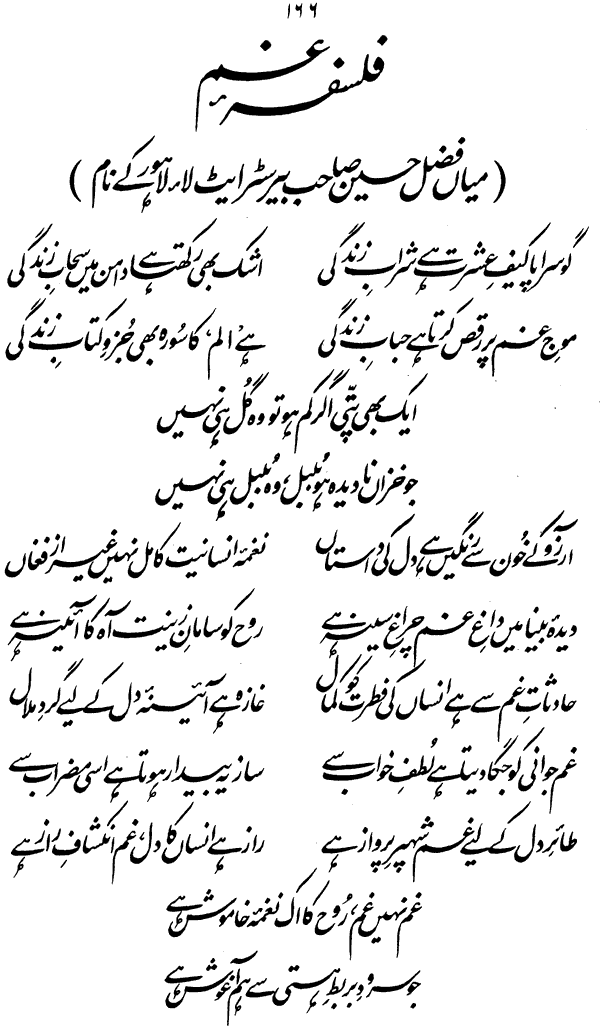 ۱۶۶
فلسفۂ غم
(میاں فضل حسین صاحب بیرسٹر ایٹ لاء لاہور کے نام)
گو سراپا کیفِ عشرت ہے شرابِ زندگی اشک بھی رکھتا ہے دامن میں سحابِ زندگی
موجِ غم پر رقص کرتا ہے حبابِ زندگی ہے ’الم‘ کا سُورہ بھی جُزوِ کتابِ زندگی
ایک بھی پتّی اگر کم ہو تو وہ گُل ہی نہیں
جو خزاں نادیدہ ہو بُلبل، وہ بُلبل ہی نہیں
آرزو کے خُون سے رنگیں ہے دل کی داستاں نغمۂ انسانیت کامل نہیں غیر از فغاں
دیدۂ بینا میں داغِ غم چراغِ سینہ ہے روح کو سامانِ زینت آہ کا آئینہ ہے
حادثاتِ غم سے ہے انساں کی فطرت کو کمال غازہ ہے آئینۂ دل کے لیے گردِ ملال
غم جوانی کو جگا دیتا ہے لُطفِ خواب سے ساز یہ بیدار ہوتا ہے اسی مضراب سے
طائرِ دل کے لیے غم شہپرِ پرواز ہے راز ہے انساں کا دل، غم انکشافِ راز ہے
غم نہیں غم، رُوح کا اک نغمۂ خاموش ہے
جو سرودِ بربطِ ہستی سے ہم آغوش ہے